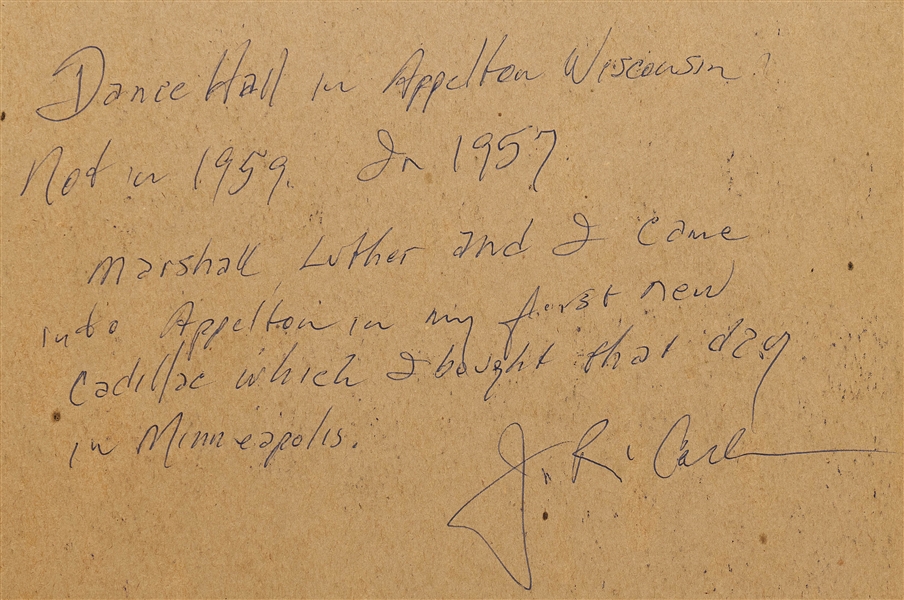 Dance Hall in Appelton Wisconsin.
Not in 1959. In 1957
Marshall, Luther and I came
into Appelton in my first new
Cadillac which I bought that day
in Minneapolis.
J. R. Cash